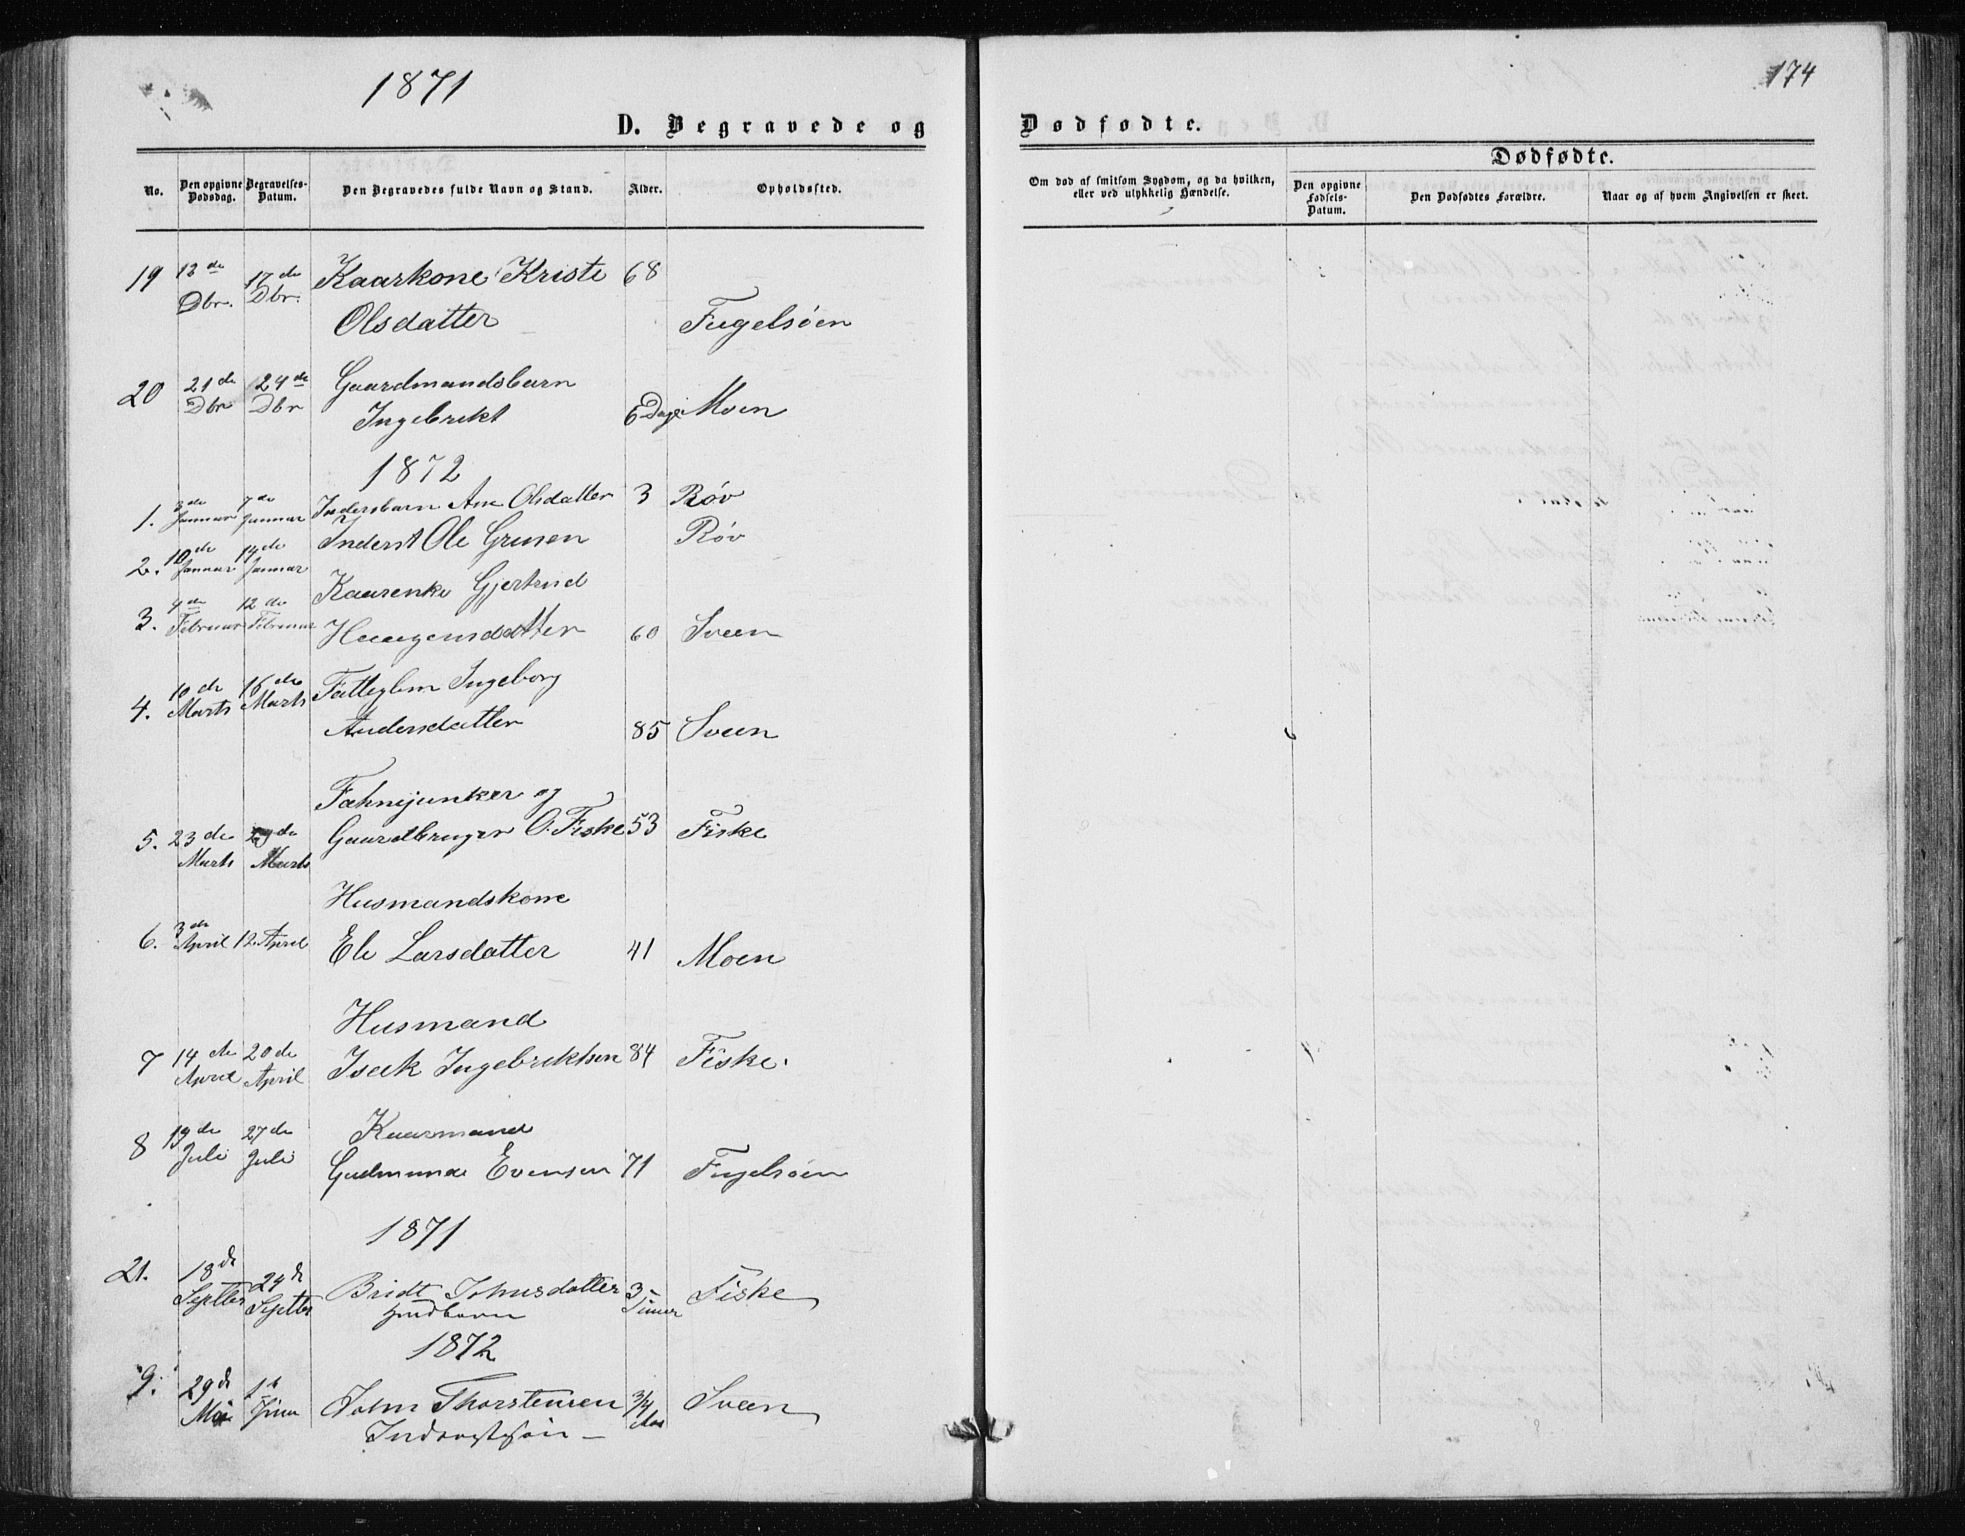 1871
174
D. Begravede og Dødfødte.
Dødfødte.
No. Den opgivne Dødsdag. Begravelses-Datum. Den Begravedes fulde Navn og Stand. Alder. Opholdssted. Om død af smitsom Sygdom, og da hvilken, eller ved ulykkelig Hændelse. Den opgivne Fødsels-Datum. Den Dødfødtes Forældre. Naar og af hvem Angivelsen er skeet.
19 13de 17de Kaarkone Kristi 68
Dbr. Dbr. Olsdatter Fugelsøen
20 21de 24de Gaardmandsbarn
Dbr Dbr Ingebrekt 6 Dage Moen
1872
1. 3de Januar 7de Januar Inderstbarn Ane Olsdatter 3 Røv
2. 10de Januar 14de Januar Inderst Ole Røv
3. 4de Februar 12de Februar Kaarenke Gjertrud
Haagensdatter 60 Sveen
4. 10de Marts 16de Marts Fatteglem Ingeborg
Andersdatter 85 Sveen
Fahnejunker og
5. 23de Marts Marts Gaardbruger O. Fiske 53 Fiske
Husmandskone
6. 3de April 12 April Eli Larsdatter 41 Moen
Husmand
7 14de April 20de April Isak Ingebrektsen 84 Fiske.
8 19de Juli 27de Juli Kaarmand
Gudmund Evensen 71 Fugelsøen
1871
21. 18de Septbr 24de Septbr Bridt Johnsdatter 3 Timer Fiske
1872
9. 29de Mai John Thorstensen 3/4 Aar Sveen
Inderstsøn